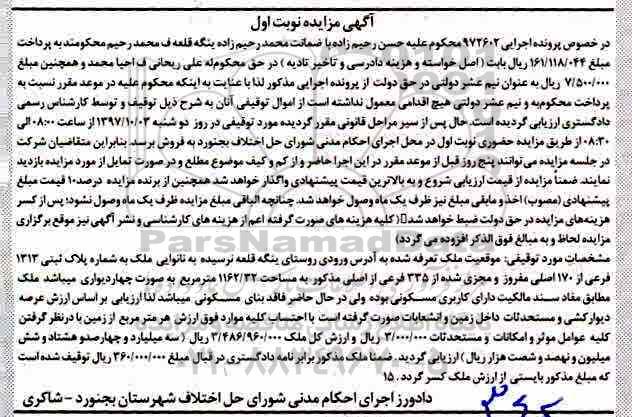 آگهی مزایده نوبت اول
در خصوص پرونده اجرایی ۹۷۲۶۰۲ محکوم علیه حسن رحیم زاده با ضمانت محمد رحیم زاده ینگه قلعه ف محمد رحیم محکومند به پرداخت
مبلغ ۱۶۱/۱۱۸/۰۴۴ ریال بابت ( اصل خواسته و هزینه دادرسی و تاخیر تادیه ) در حق محکوم‌له علی ریحانی ف احیا محمد و همچنین مبلغ
۷/۵۰۰/۰۰۰ ریال به عنوان نیم عشر دولتی در حق دولت از پرونده اجرایی مذکور لذا با عنایت به اینکه محکوم علیه در موعد مقرر نسبت به
پرداخت محکوم‌به و نیم عشر دولتی هیچ اقدامی معمول نداشته است از اموال توقیفی آنان به شرح ذیل توقیف و توسط کارشناس رسمی
دادگستری ارزیابی گردیده است. حال پس از سیر مراحل قانونی مقرر گردیده مورد توقیفی در روز دو شنبه ۱۳۹۷/۱۰/۰۳ از ساعت ۰۸:۰۰ الی
۰۸:۳۰ از طریق مزایده حضوری نوبت اول در محل اجرای احکام مدنی شورای حل اختلاف بجنورد به فروش برسد. بنابراین متقاضیان شرکت
در جلسه مزایده می‌توانند پنج روز قبل از موعد مقرر در این اجرا حاضر و از کم و کیف موضوع مطلع و در صورت تمایل از مورد مزایده بازدید
نمایند. ضمناً مزایده از قیمت ارزیابی شروع و به بالاترین قیمت پیشنهادی واگذار خواهد شد همچنین از برنده مزایده درصد۱۰ قیمت مبلغ
پیشنهادی (مصوب) اخذ و مابقی مبلغ نیز ظرف یک ماه وصول خواهد شد. چنانچه الباقی مبلغ مزایده ظرف یک ماه وصول نشود؛ پس از کسر
هزینه‌های مزایده در حق دولت ضبط خواهد شد ( کلیه هزینه های صورت گرفته اعم از هزینه های کارشناسی و نشر آگهی نیز موقع برگزاری
مزایده لحاظ و به مبالغ فوق الذکر افزوده می گردد )
مشخصات مورد توقیفی: موقعیت ملک تعرفه شده به آدرس ورودی روستای ینگه قلعه نرسیده به نانوایی ملک به شماره پلاک ثبتی ۱۳۱۳
فرعی از ۱۷۰ اصلی مفروز و مجزی شده از ۳۳۵ فرعی از اصلی مذکور به مساحت ۱۱۶۲/۳۲ مترمربع به صورت چهاردیواری میباشد ملک
مطابق مفاد سند مالکیت دارای کاربری مسکونی بوده ولی در حال حاضر فاقد بنای مسکونی میباشد لذا ارزیابی بر اساس ارزش عرصه
دیوارکشی و مستحدثات داخل زمین و انشعابات صورت گرفته است با احتساب کلیه موارد فوق ارزش هر متر مربع از زمین با درنظر گرفتن
کلیه عوامل موثر و امکانات و مستحدثات ۳/۰۰۰/۰۰۰ ریال و ارزش کل ملک ۳/۴۸۶/۹۶۰/۰۰۰ ریال ( سه میلیارد و چهارصدو هشتاد و شش
میلیون و نهصد و شصت هزار ریال ) ارزیابی گردید . ضمنا ملک مذکور برابر نامه دادگستری در قبال مبلغ ۳۶۰/۰۰۰/۰۰۰ ریال توقیف شده است
که مبلغ مذکور بایستی از ارزش ملک کسر گردد . ۱۵
دادورز اجرای احکام مدنی شورای حل اختلاف شهرستان بجنورد - شاکری
ParsNamadData